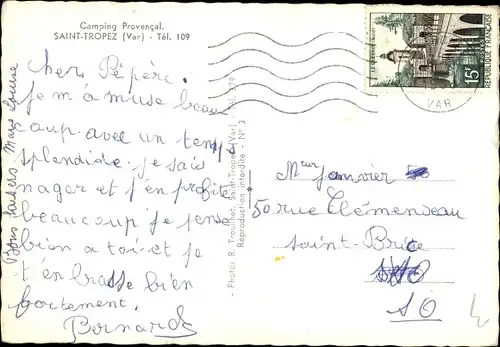 Camping Provençal.
SAINT-TROPEZ (Var) - Tél. 109
cher Pépère.
je m'amuse beau
coup avec un temps
splendide. je sais
nager et j'en profite
beaucoup je pense
bien a toi et je
t'enbrasse bien
fortement.
Bernard
Bons baisers
- Photos R. Trouillet, Saint-Tropez (Var) - Tél. 279 -
Reproduction interdite - N° 3
Meur janvier
50 rue Clémenseau
saint-Brice
SO
LE QUESNOY (Nord)
15F
REPUBLIQUE FRANÇAISE
VAR